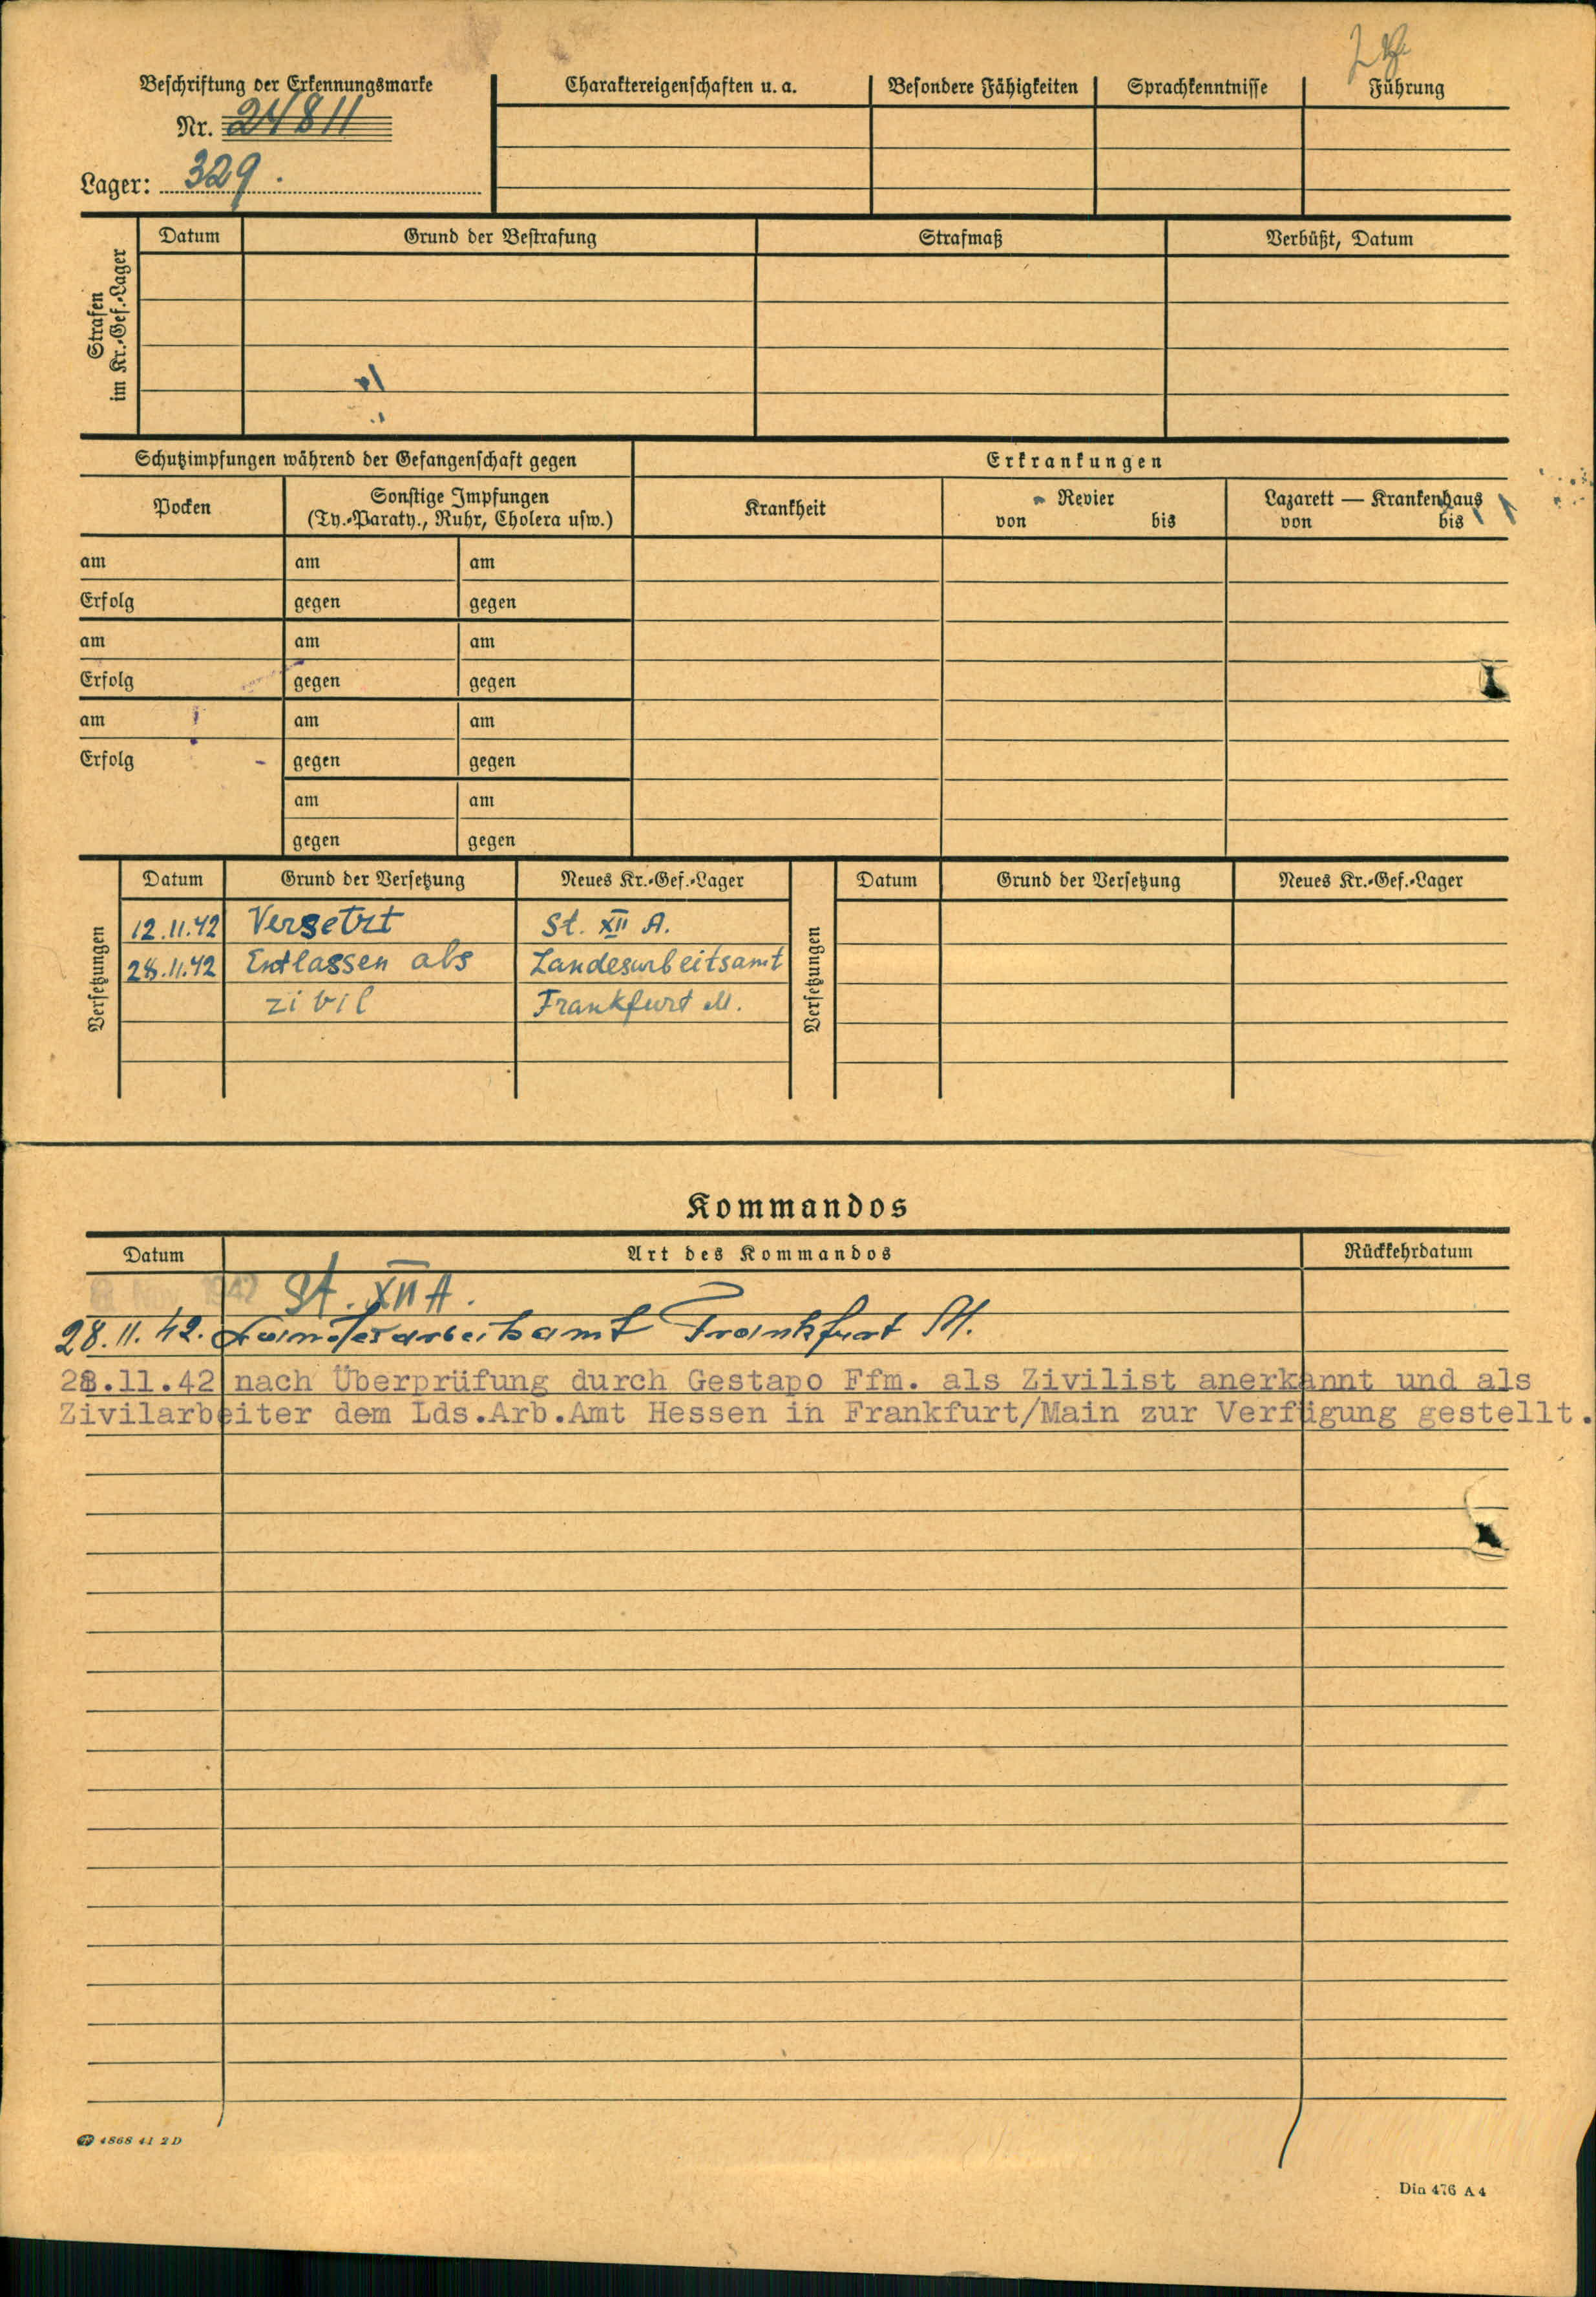 Beschriftung der Erkennungsmarke
Nr. 24811
Lager: 329.
Charaktereigenschaften u. a. Besondere Fähigkeiten Sprachkenntnisse Führung
Strafen im Kr.-Gef.-Lager
Datum Grund der Bestrafung Strafmaß Verbüßt, Datum
Schutzimpfungen während der Gefangenschaft gegen Erkrankungen
Pocken Sonstige Impfungen (Ty.-Paraty., Ruhr, Cholera usw.) Krankheit Revier von bis Lazarett — Krankenhaus von bis
am am am
Erfolg gegen gegen
am am am
Erfolg gegen gegen
am am am
Erfolg gegen gegen
am am
gegen gegen
Versetzungen
Datum Grund der Versetzung Neues Kr.-Gef.-Lager
12.11.42 Versetzt St. XII A.
28.11.42 Entlassen als Landesarbeitsamt
zivil Frankfurt M.
Versetzungen
Datum Grund der Versetzung Neues Kr.-Gef.-Lager
Kommandos
Datum Art des Kommandos Rückkehrdatum
Nov 1942 St. XII A.
28.11.42. Landesarbeitsamt Frankfurt M.
28.11.42 nach Überprüfung durch Gestapo Ffm. als Zivilist anerkannt und als
Zivilarbeiter dem Lds.Arb.Amt Hessen in Frankfurt/Main zur Verfügung gestellt.
4868 41 2D
Din 476 A4